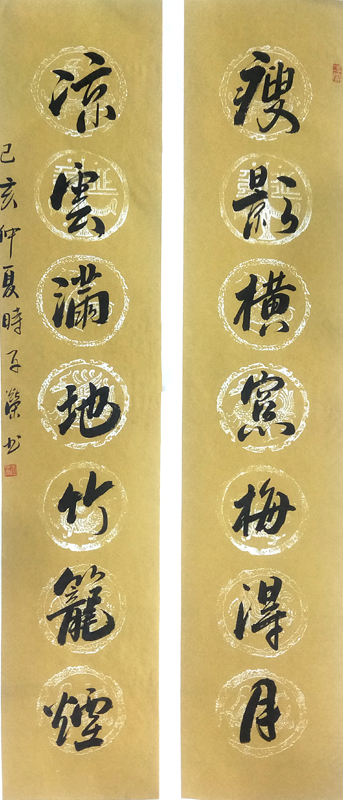 瘦影橫窓梅得月
涼雲滿地竹籠煙
己亥仲夏時子榮书